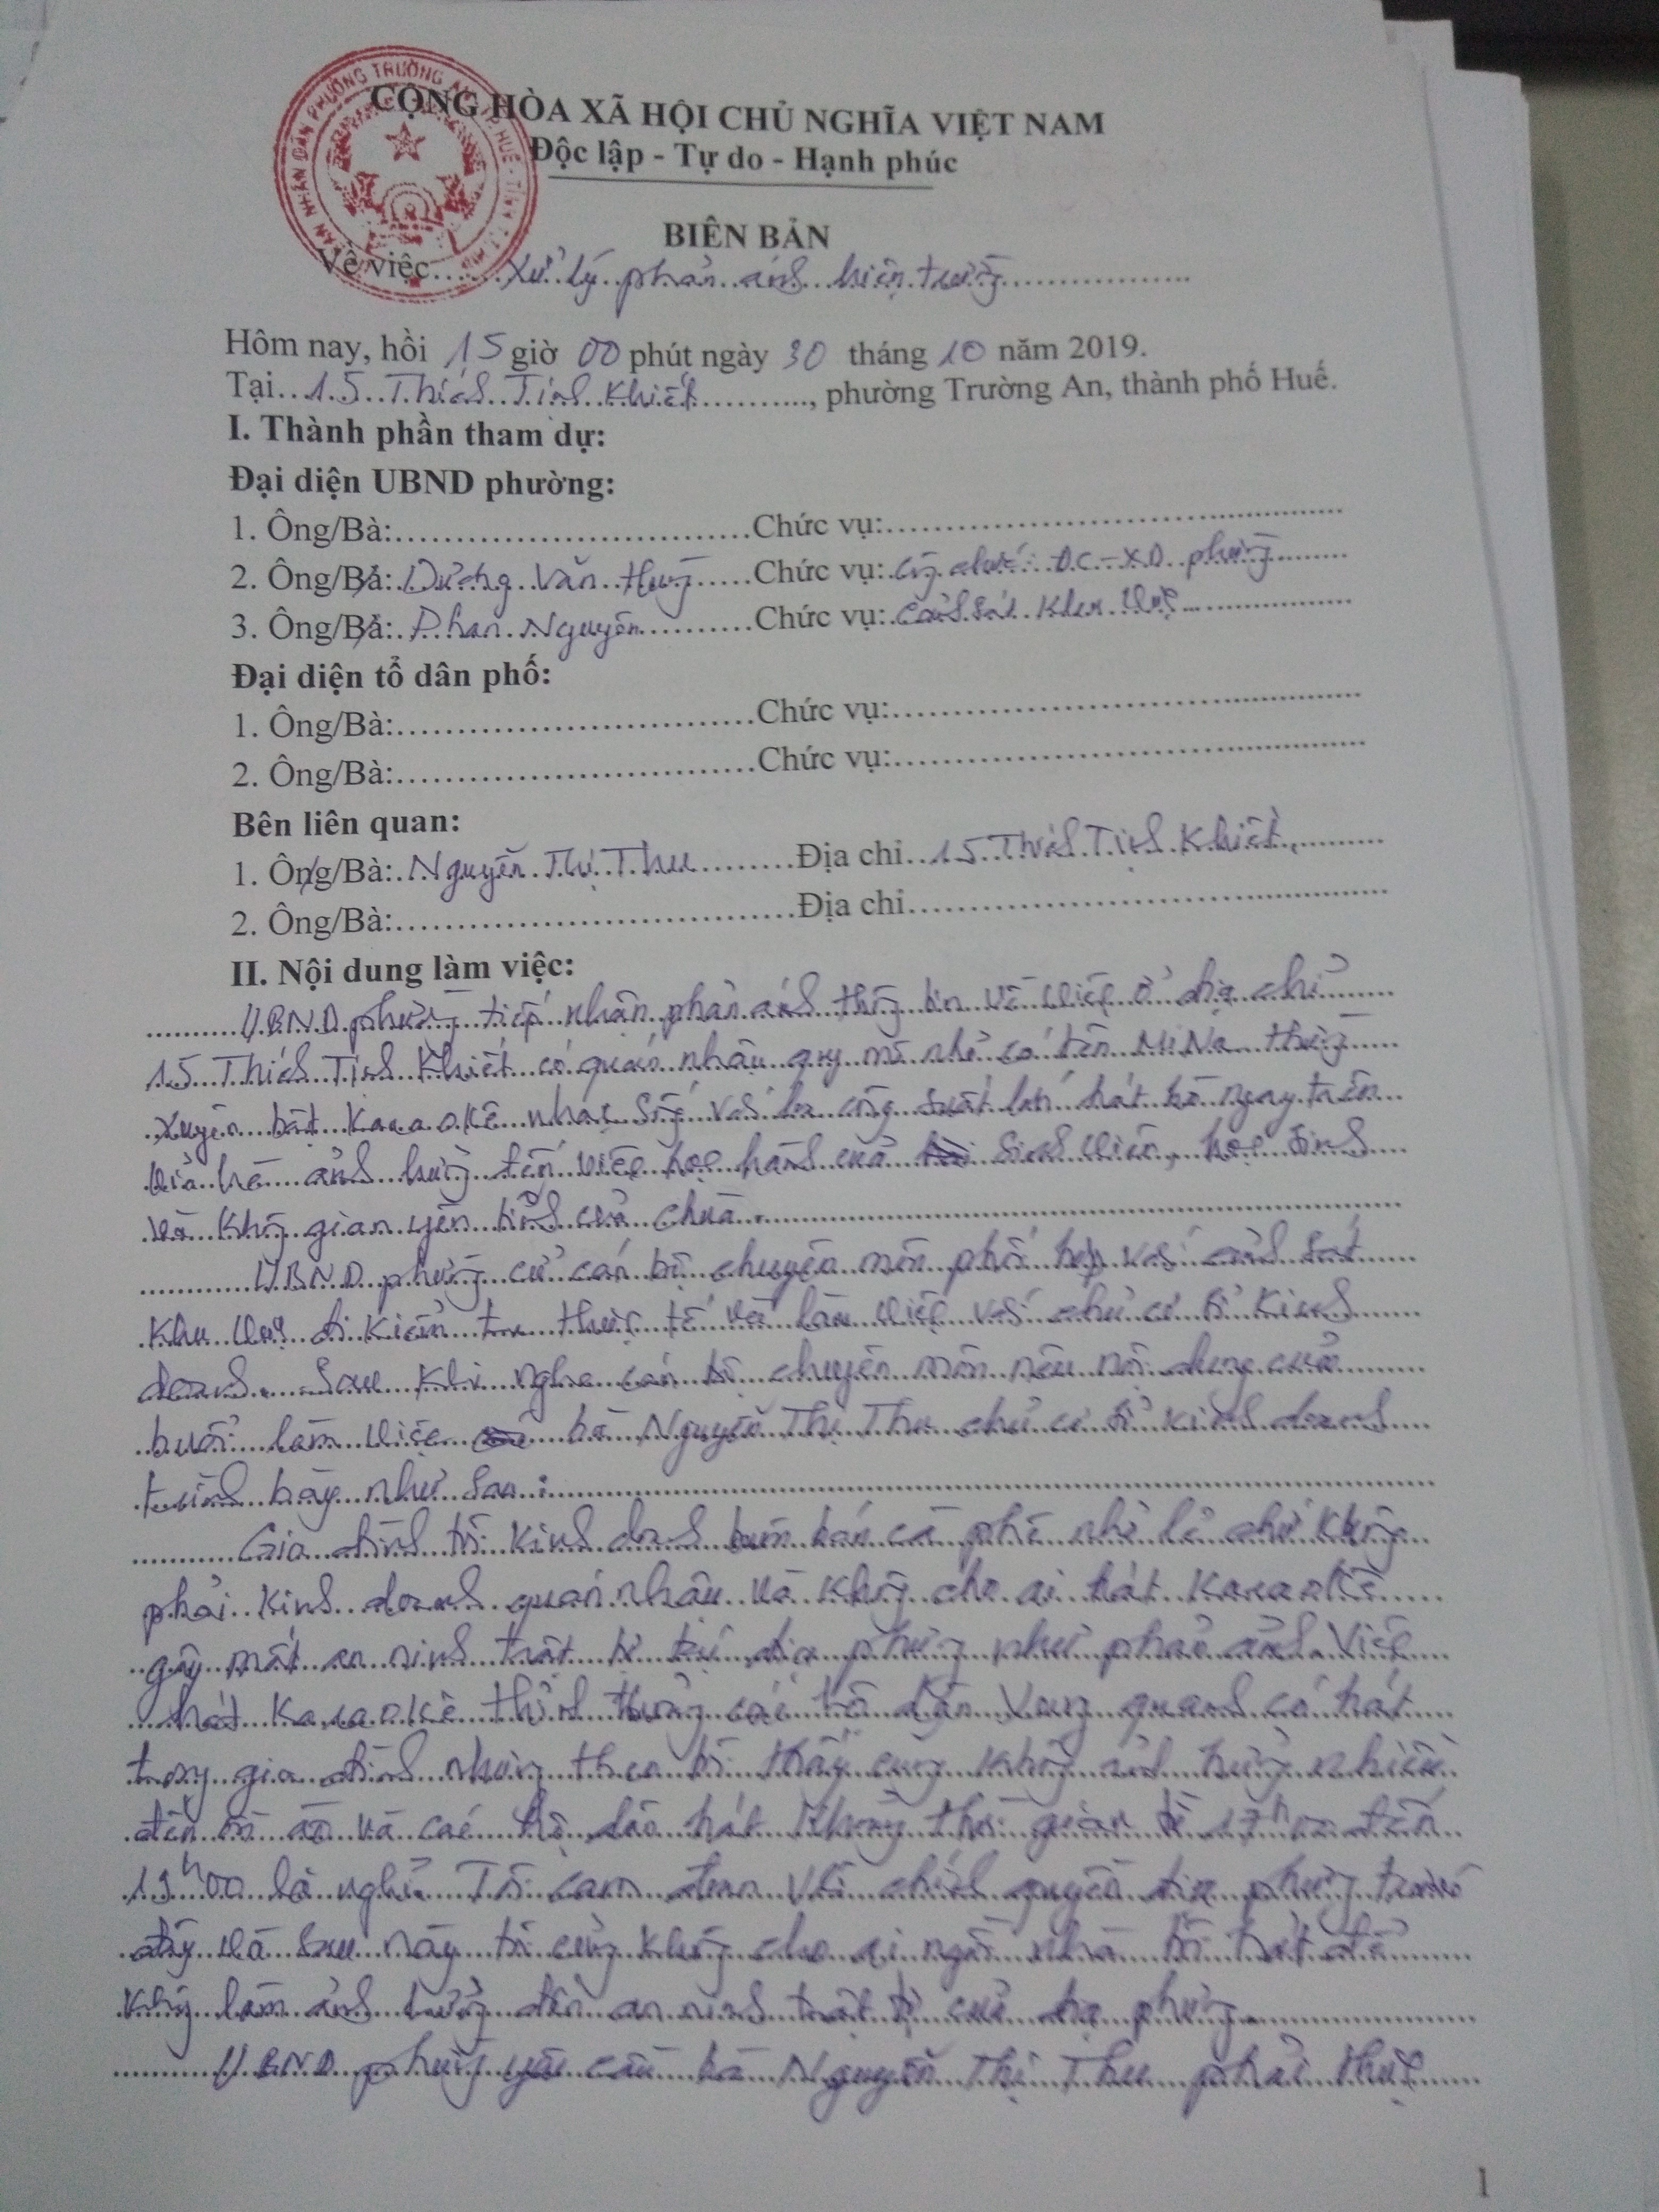 CỘNG HÒA XÃ HỘI CHỦ NGHĨA VIỆT NAM
Độc lập - Tự do - Hạnh phúc
BIÊN BẢN
Về việc...... Xử lý phản ánh hiện trường
Hôm nay, hồi 15 giờ 00 phút ngày 30 tháng 10 năm 2019.
Tại...15 Thích Tịnh Khiết..........., phường Trường An, thành phố Huế.
I. Thành phần tham dự:
Đại diện UBND phường:
1. Ông/Bà:..............................Chức vụ:..............................
2. Ông/Bà: Dương Văn Hưng......Chức vụ: Công chức ĐC-XD phường
3. Ông/Bà: Phan Nguyên..........Chức vụ: Cảnh sát khu vực
Đại diện tổ dân phố:
1. Ông/Bà:..............................Chức vụ:..............................
2. Ông/Bà:..............................Chức vụ:..............................
Bên liên quan:
1. Ông/Bà: Nguyễn Thị Thu..........Địa chỉ...15 Thích Tịnh Khiết
2. Ông/Bà:..............................Địa chỉ..............................
II. Nội dung làm việc:
UBND phường tiếp nhận phản ánh thông tin về việc ở địa chỉ
15 Thích Tịnh Khiết có quán nhậu quy mô nhỏ có tên MiNa thường
xuyên bật Karaokê nhạc sống với loa công suất lớn hát hò ngay trên
vỉa hè ảnh hưởng đến việc học hành của sinh viên, học sinh
và không gian yên tĩnh của chùa.
UBND phường cử cán bộ chuyên môn phối hợp với cảnh sát
khu vực đi kiểm tra thực tế và làm việc với chủ cơ sở kinh
doanh. Sau khi nghe cán bộ chuyên môn nêu nội dung của
buổi làm việc bà Nguyễn Thị Thu chủ cơ sở kinh doanh
trình bày như sau:
Gia đình tôi kinh doanh buôn bán cà phê nhỏ lẻ chứ không
phải kinh doanh quán nhậu và không cho ai hát Karaokê
gây mất an ninh trật tự tại địa phương như phản ánh. Việc
hát Karaokê thỉnh thoảng các hộ dân xung quanh có hát
trong gia đình nhưng theo tôi thấy cũng không ảnh hưởng nhiều
đến ồn ào và các hộ dân hát thường thời gian từ 17h00 đến
19h00 là nghỉ. Tôi cam đoan với chính quyền địa phương trước
đây và sau này tôi cũng không cho ai ngồi nhà tôi hát để
không làm ảnh hưởng đến an ninh trật tự của địa phương.
UBND phường yêu cầu bà Nguyễn Thị Thu phải thực
1